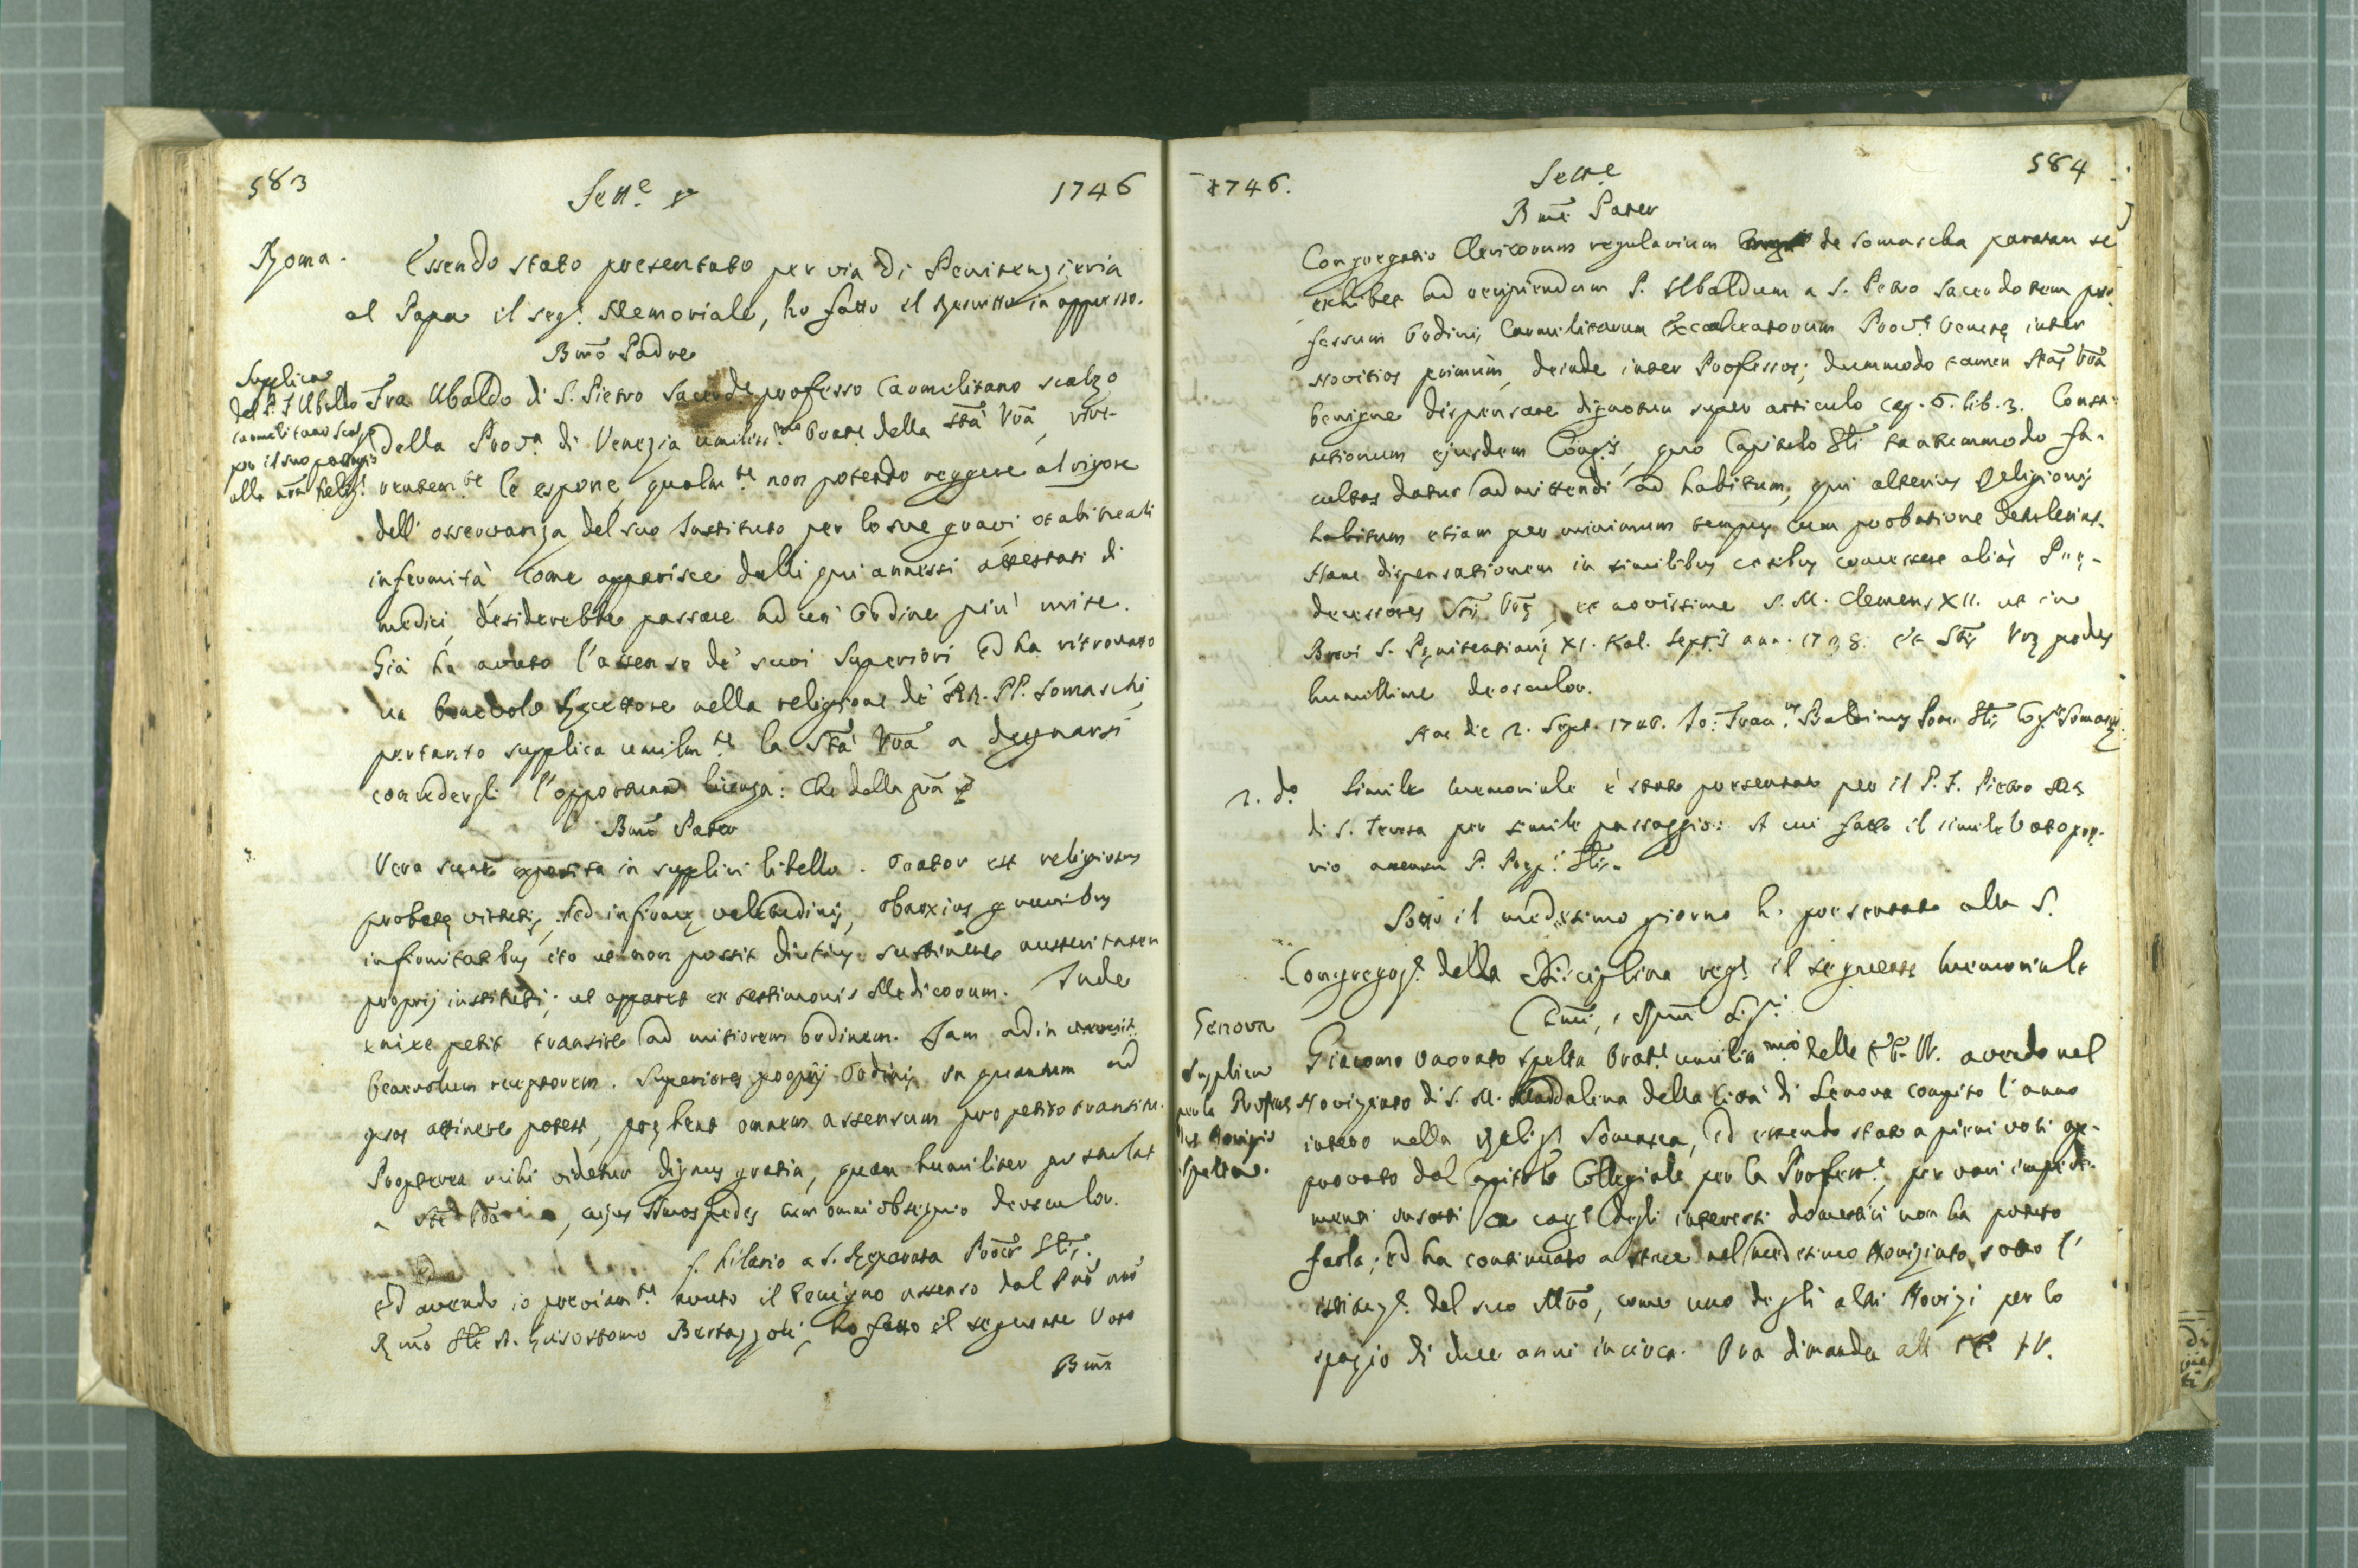 583 Sett.e 1746
Roma. Essendo stato presentato per via di Penitenzieria
al Papa il seg.e Memoriale, ho fatto il
Bm̃o Padre
Supplica
del P. F. Ubaldo
Carmelitano Scal.
per il suo passagio
alla nr̃a Relig.e
Fra Ubaldo di S. Pietro Sacerd.e professo Carmelitano scalzo
della Prov.a di Venezia umiliss.mo Orate della Stà Vr̃a, rive-
rentem.te le espone, qualm.te non potendo reggere al rigore
dell' osservanza del suo Instituto per le sue gravi, et abituali
infermità come apparisce dalli qui annessi attestati di
medici, desiderebbe passare ad un' Ordine piu' mite.
Già ha avuto l'assenso de' suoi Superiori, ed ha ritrovato
un benevolo Recettore nella religione de' RR. PP. Somaschi,
pertanto supplica umilm.te la Stà Vr̃a a degnarsi
concedergli l'opportuna licenza: Che della grã
Bm̃e Pater
Vera sunt exposita in supplici libello. Orator est religiosus
probatę virtutis, sed infirmę valetudinis, obnoxius gravibus
infirmitatibus ita ut non possit diutius sustinere austeritatem
proprij instituti; ut apparet ex testimonis Medicorum. Inde
enixe petit transire ad mitiorem Ordinem. Jam adinvenit
benevolum receptorem. Superiores proprij Ordinis, in quantum ad
ipsos attinere potest, pręhent omnem assensum pro petito transitu.
Propterea mihi videtur dignus gratia, quam humiliter postulat
a , cujus Smos pedes cum omni obsequio deosculor.
f. Hilario a S. Reparata Procr̃ Gtis.
Ed avendo io previam.te avuto il benigno assenso dal Pr̃e nr̃o
Rm̃o Gle D. Grisostomo Bertazzoli, ho fatto il seguente Voto
Bm̃e
1746. Sett.e 584
Bm̃e Pater
Congregatio Clericorum regularium de Somascha paratam se
exhibet ad recipiendum P. Ubaldum a S. Petro Sacerdotem pro-
fessum Ordinis Carmelitarum Excalceatorum Prov.e Venetę inter
Novitios primum, deinde inter Professos; dummodo tamen Stas Vr̃a
benigne dispensare dignetur super articulo cap. 6. lib. 3. Consti-
tutionum ejusdem Cong.s, quo Capitulo Gli tantummodo fa-
cultas datur admittendi ad habitum, qui alterius Religionis
habitum etiam per minimum tempus cum probatione detulerint.
Hanc dispensationem in similibus casibus concessere aliàs Prę-
decessores Stis Vrę, et novissime S. M. Clemens XII. ut in
Brevi S. Pęnitentiarię XI. Kal. Sept.s ann. 1738. Et Stis Vrę pedes
humillime deosculor.
Hac die 2. Sept. 1746. Jo: Fran.us Baldinus Proc. Gtis Cg.is Somasę.
2. d.o Simile memoriale è stato presentato per il P. F. Pietro
di S. Teresa per simile passaggio: A cui fatto il simile Voto prę-
vio assensu P. Pręp.i Gtis.
Sotto il medesimo giorno ho presentato alla S.
Congregaz.e della Disciplina reg.e il seguente memoriale
Em̃i, e Rm̃i Sig.ri
Genova
Supplica
per la Profess.
del Novizio
Spelta.
Giacomo Onorato Spelta Orat.e umiliss.mo delle EE. VV. avendo nel
Noviziato di S. M. Maddalena della Città di Genova compito l'anno
intero nella Relig.e Somasca, ed essendo stato a pieni voti ap-
provato dal Capitolo Collegiale per la Profess.e, per vari impedi-
menti insorti a cag.e degli interessi domestici non ha potuto
farla; ed ha continuato a stare nel medesimo Noviziato sotto l'
istituz.e del suo Mr̃o, come uno degli altri Novizi per lo
spazio di due anni incirca. Ora dimanda all' EE. VV.